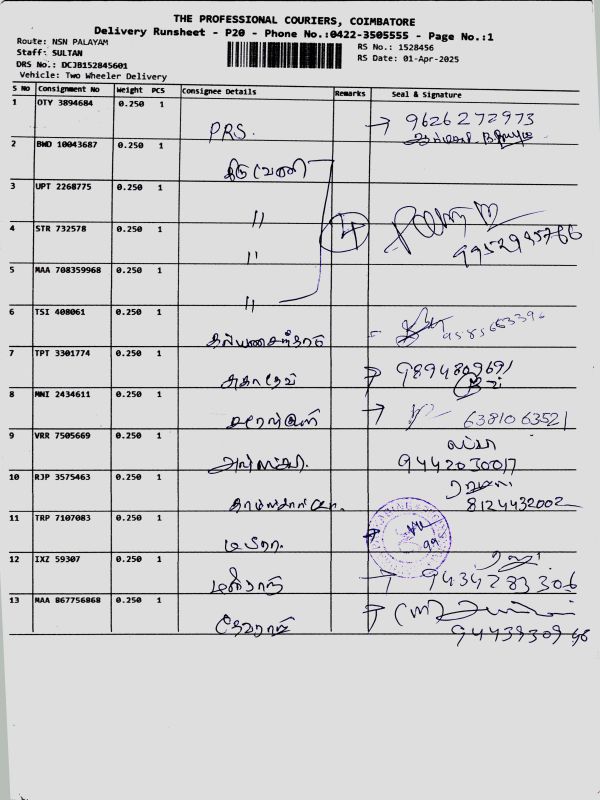 THE PROFESSIONAL COURIERS, COIMBATORE
Delivery Runsheet - P20 - Phone No.:0422-3505555 - Page No.:1
Route: NSN PALAYAM
Staff: SULTAN
DRS No.: DCJB152845601
Vehicle: Two Wheeler Delivery
RS No.: 1528456
RS Date: 01-Apr-2025
S No Consignment No Weight PCS Consignee Details Remarks Seal & Signature
1 OTY 3894684 0.250 1 PRS. → 9626272973
2 BWD 10043687 0.250 1 திருவேணி
3 UPT 2268775 0.250 1 "
4 STR 732578 0.250 1 " 4 9952945766
5 MAA 708359968 0.250 1 "
6 TSI 408061 0.250 1 - 9585663396
7 TPT 3301774 0.250 1 → 9894809691
8 MNI 2434611 0.250 1 → 6381063521
9 VRR 7505669 0.250 1 9442030017
10 RJP 3575463 0.250 1 8124432002
11 TRP 7107083 0.250 1 →
12 IXZ 59307 0.250 1 → 9434283306
13 MAA 867756868 0.250 1 தேவராஜ் →